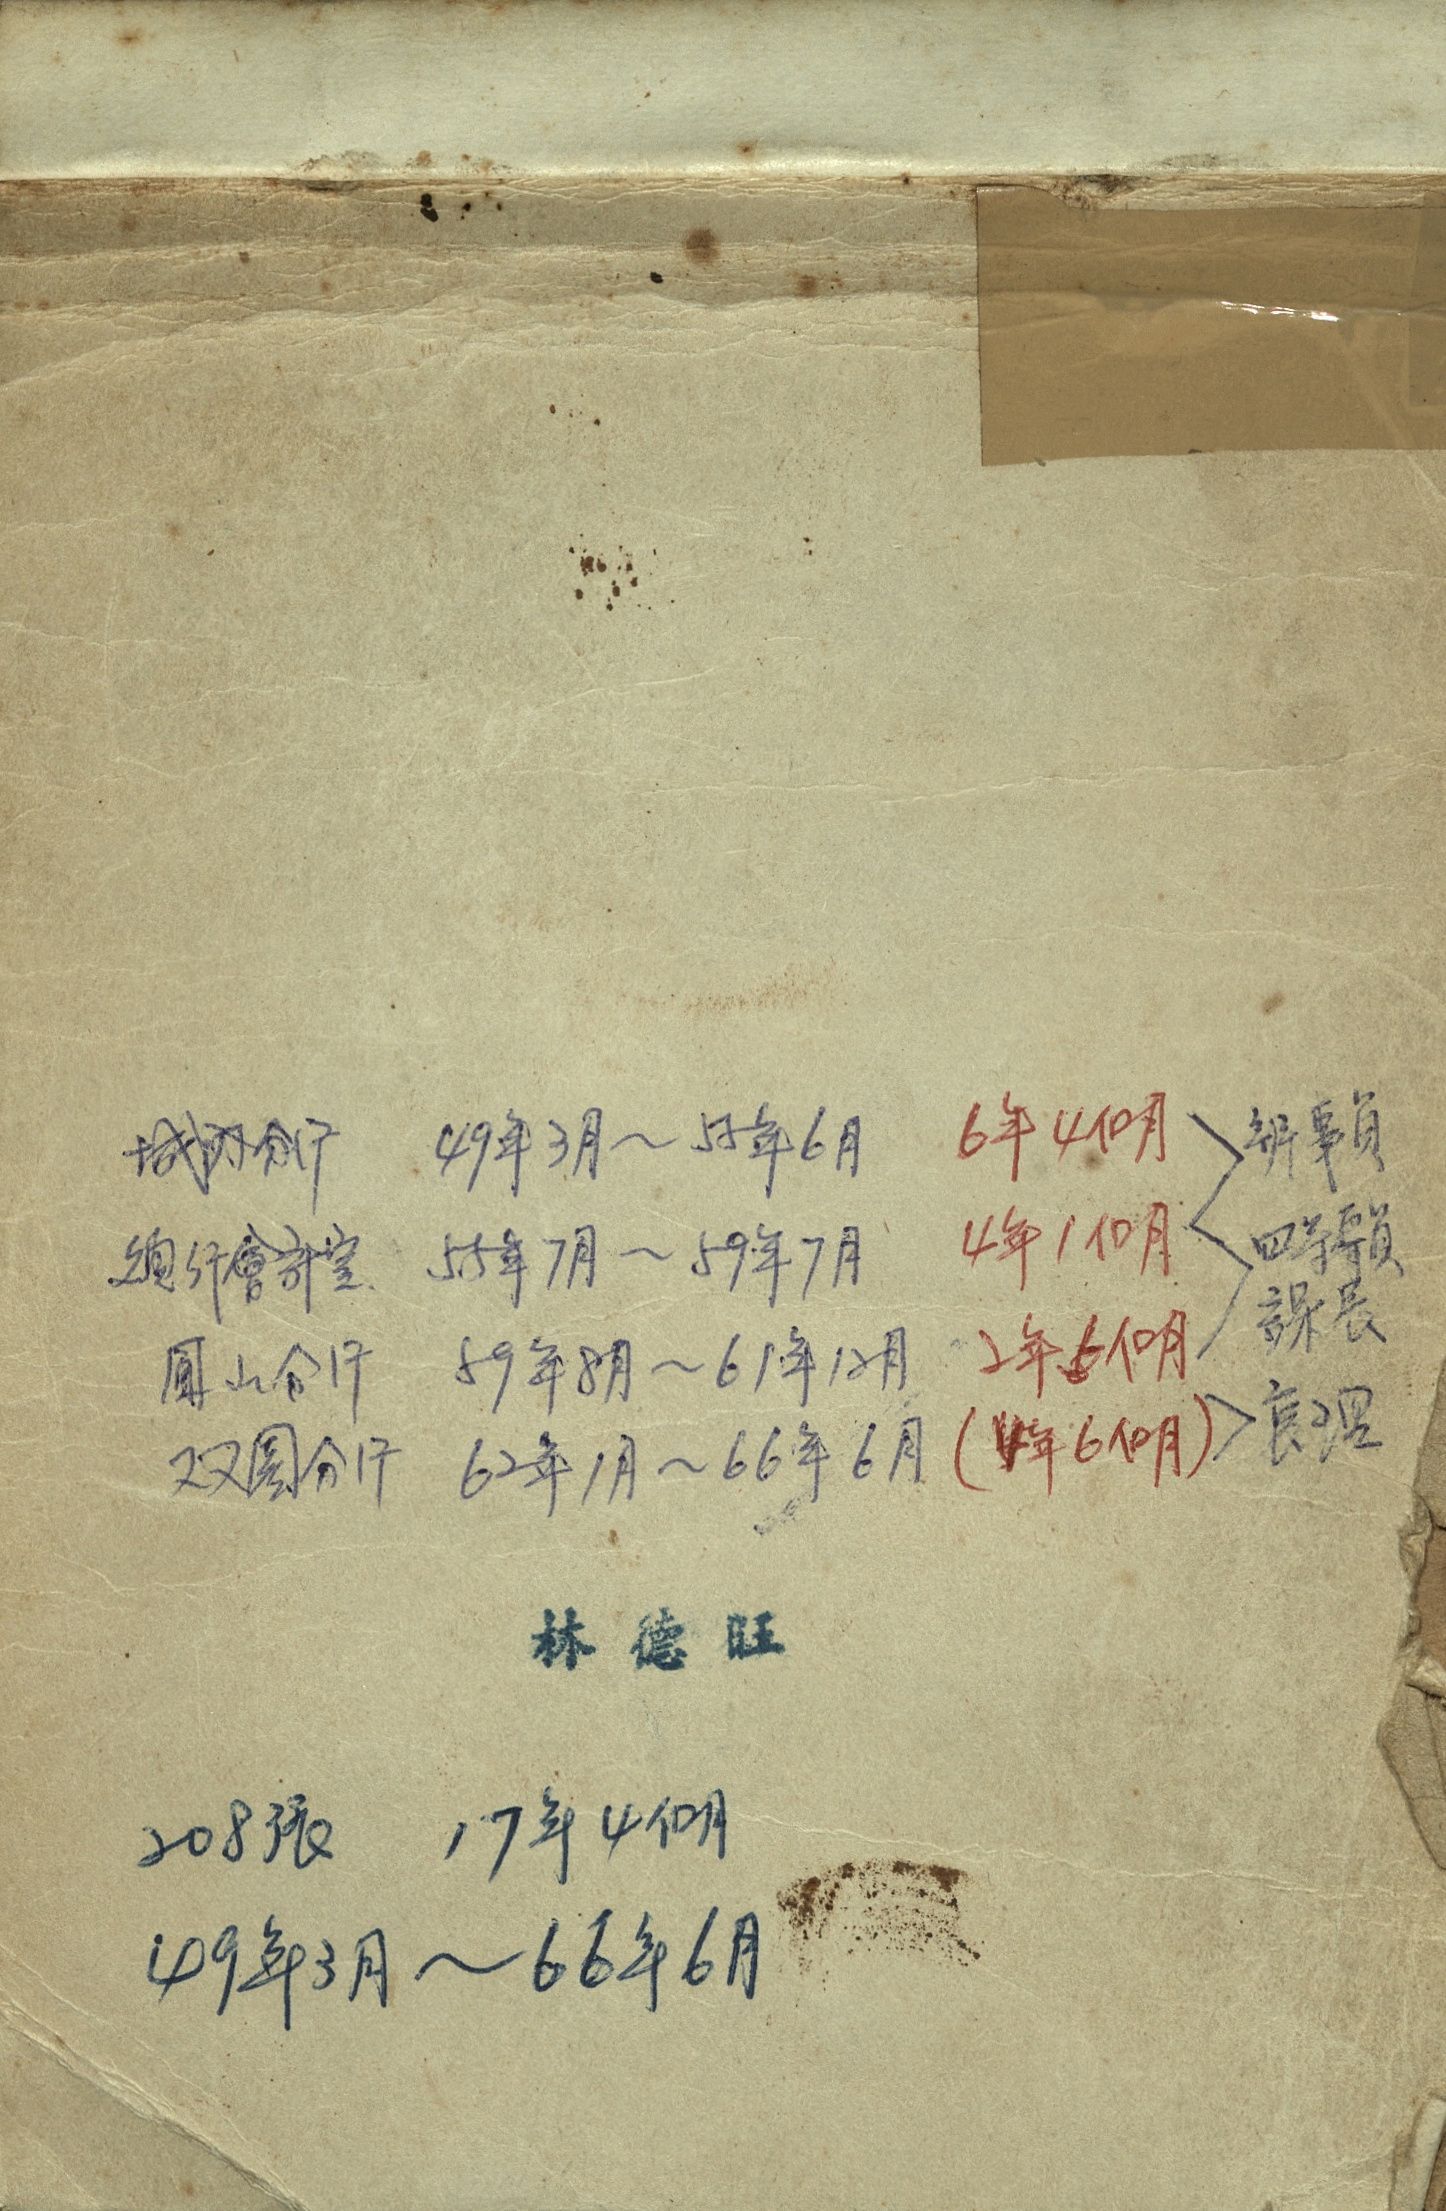 城內分行 49年3月～55年6月 6年4個月 辦事員
總行會計室 55年7月～59年7月 4年1個月 四等專員
課長
鳳山分行 59年8月～61年12月 2年5個月
双園分行 62年1月～66年6月 (4年6個月) 襄理
林德旺
208張 17年4個月
49年3月～66年6月